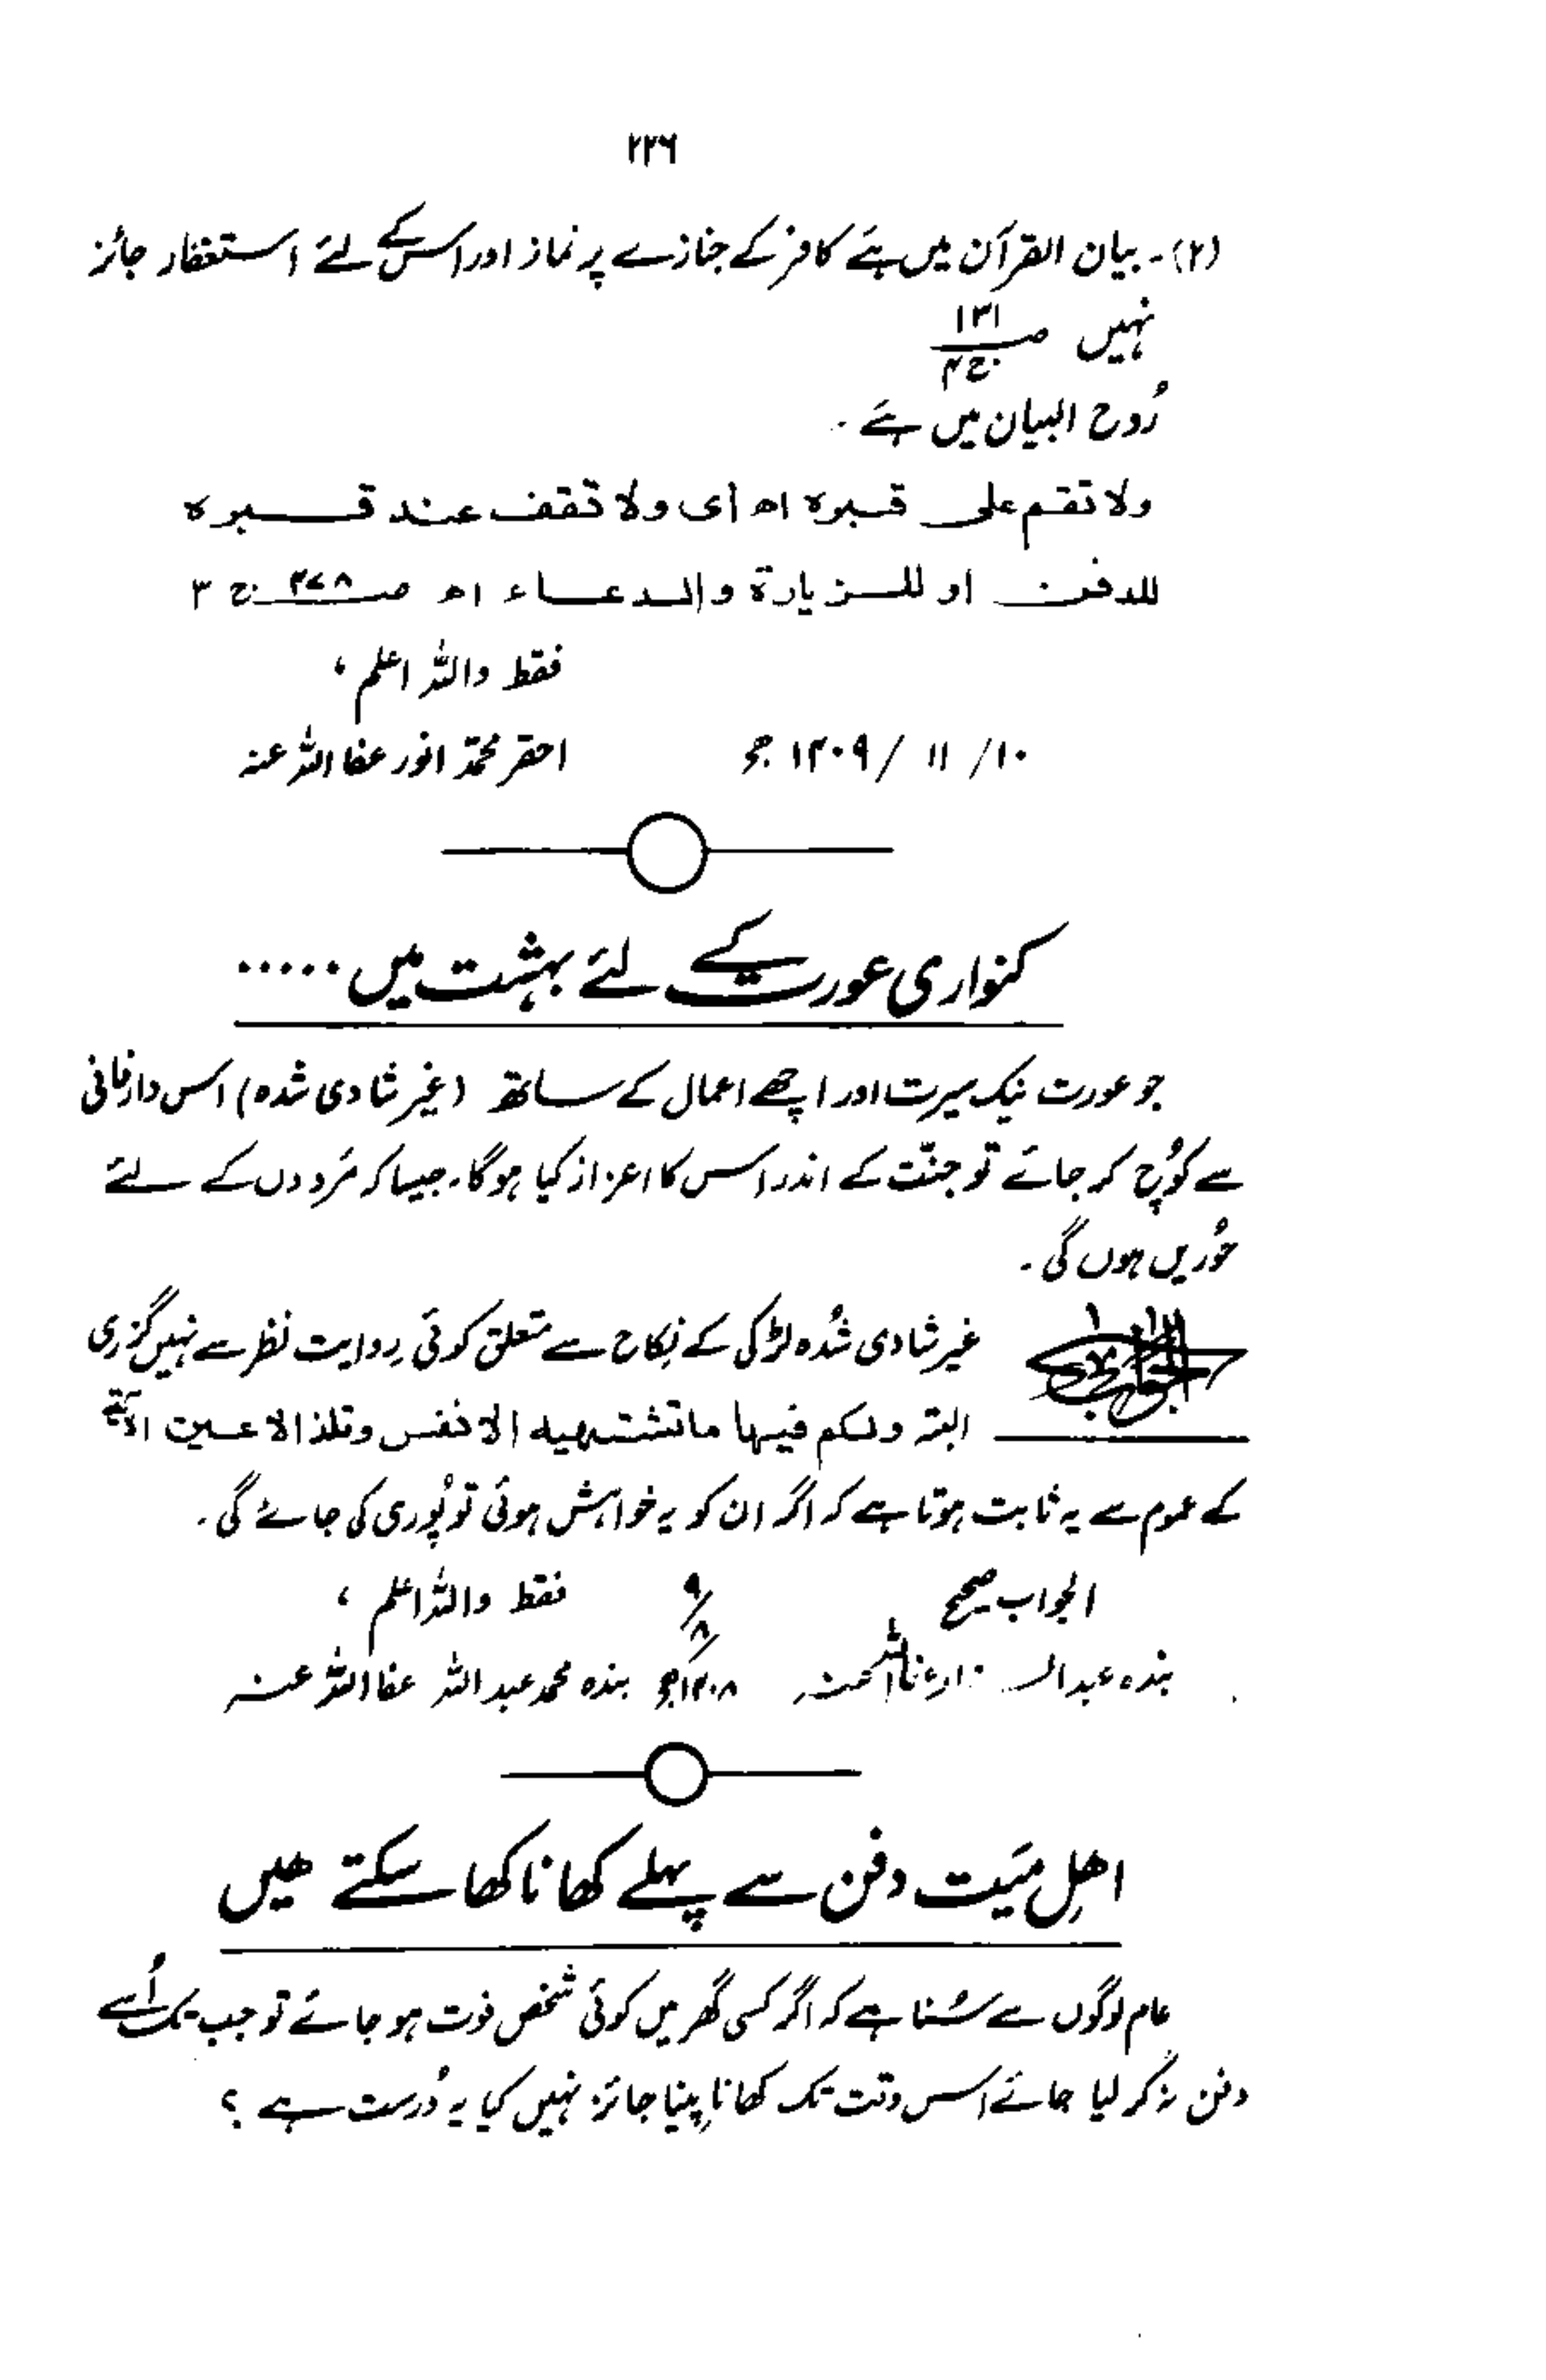 ۲۲۶
(۲)۔ بیان القرآن میں ہے کافر کے جنازے پر نماز اور اس کے لئے استغفار جائز
نہیں ص ۱۳۱ ج ۴
رُوح البیان میں ہے۔
ولا تقم علی قبره اھ ای ولا تقف عند قبره
للدفن او للزیارة والدعاء اھ ص ۳۷۸ ج ۳
فقط واللہ اعلم ،
احقر محمد انور عفا اللہ عنہ ۱۰/ ۱۱ /۱۴۰۹ ھ
کنواری عورت کے لئے بہشت میں .....
جو عورت نیک سیرت اور اچھے اعمال کے ساتھ (غیر شادی شدہ) اس دارِ فانی
سے کُوچ کر جائے تو جنّت کے اندر اس کا اعزاز کیا ہوگا۔ جیسا کہ مَردوں کے لئے
حُوریں ہوں گی۔
الجواب غیر شادی شُدہ لڑکی کے نِکاح سے متعلق کوئی رِوایت نظر سے نہیں گزری
البتہ ولکم فیہا ما تشتہیہ الانفس وتلذ الاعین الآیۃ
کے عموم سے یہ ثابت ہوتا ہے کہ اگر ان کو یہ خواہش ہوئی تو پُوری کی جائے گی۔
الجواب صحیح ۹/۸ فقط واللہ اعلم ،
بندہ عبدالستار عفا اللہ عنہ ۱۴۰۸ھ بندہ محمد عبداللہ عفا اللہ عنہ
اھلِ میّت دفن سے پہلے کھانا کھا سکتے ھیں
عام لوگوں سے سُنا ہے کہ اگر کسی گھر میں کوئی شخص فوت ہو جائے تو جب تک اُسے
دفن نہ کر لیا جائے اس وقت تک کھانا پینا جائز نہیں کیا یہ دُرست ہے ؟